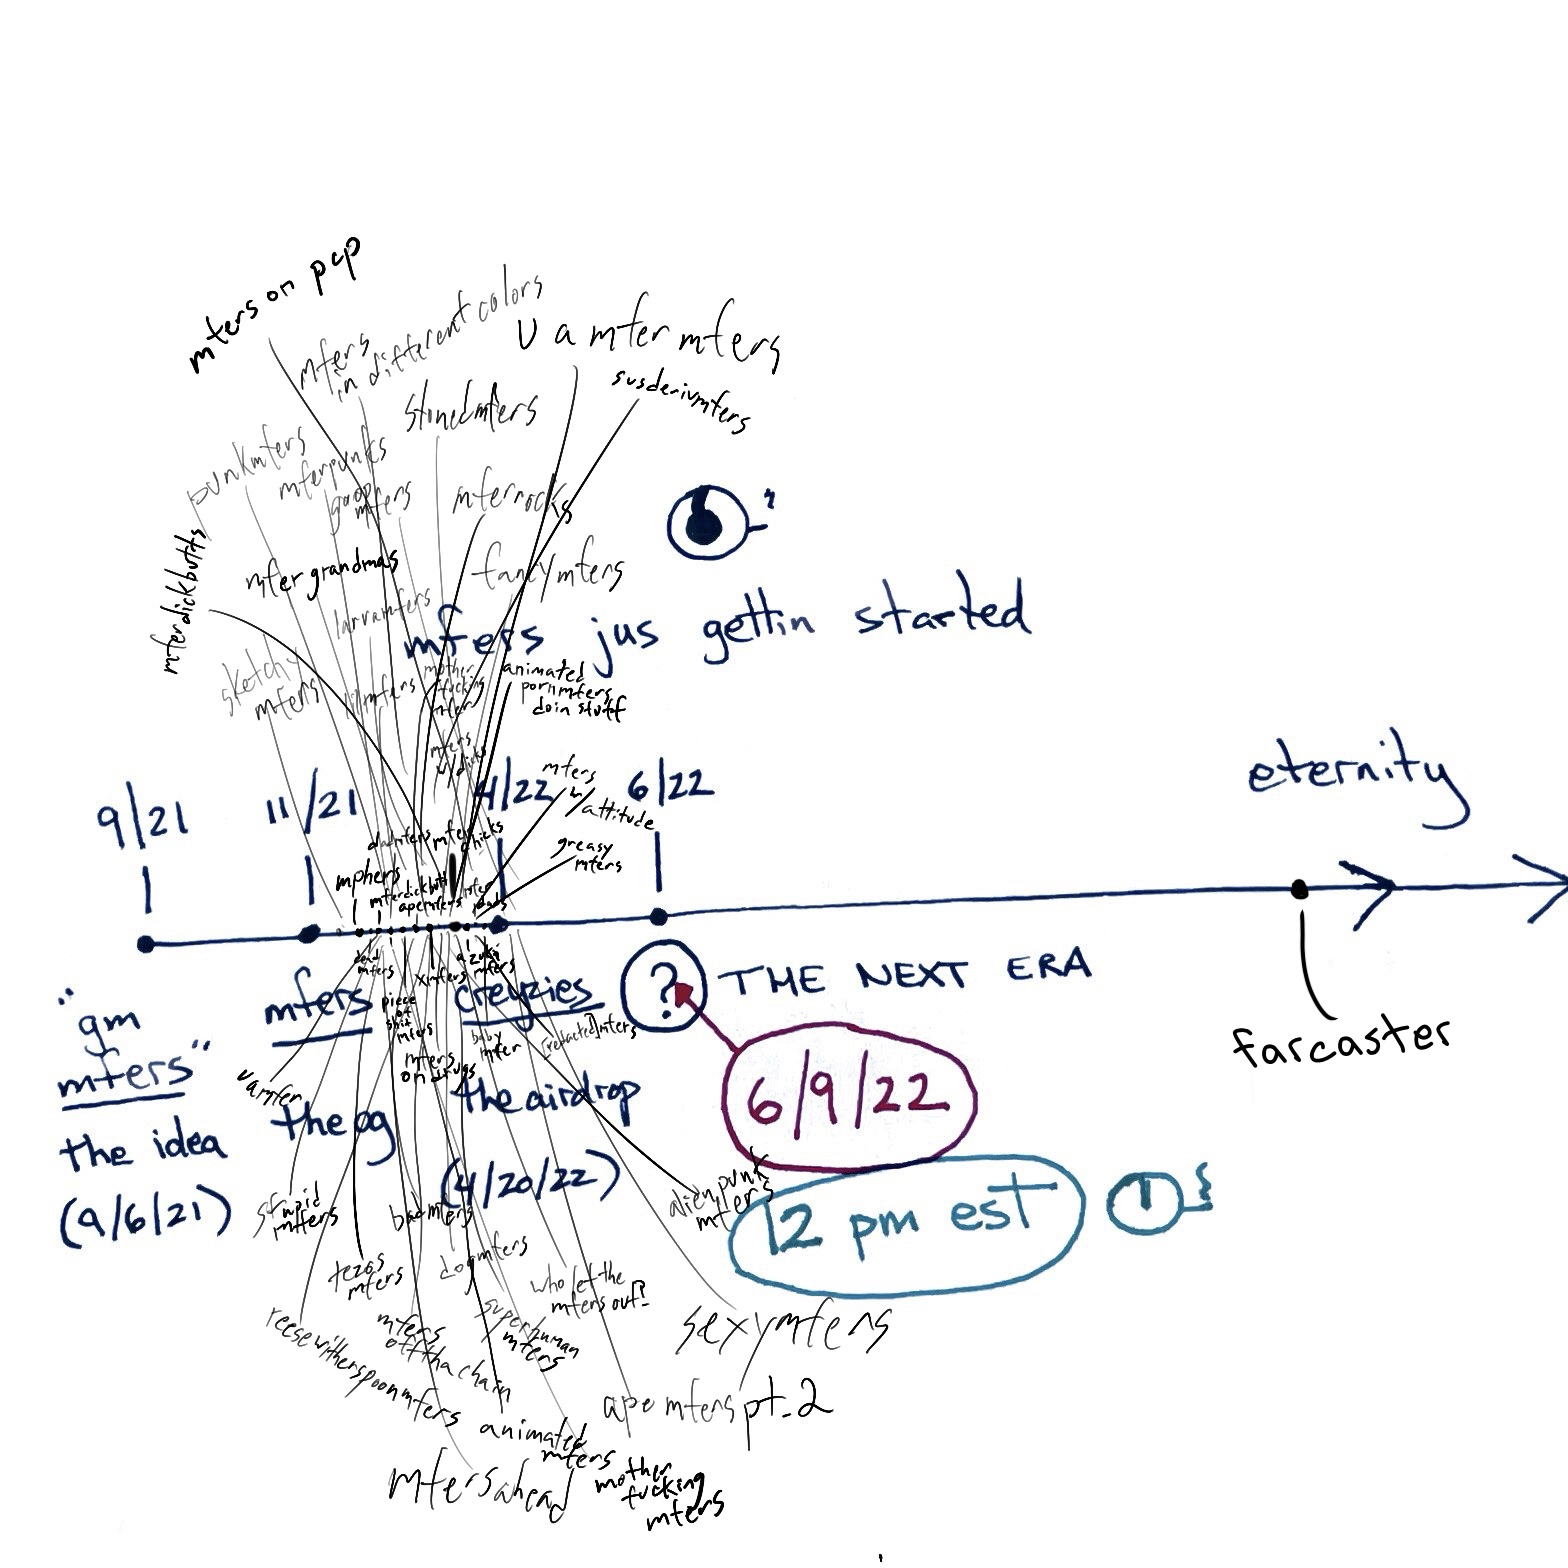 mfers on pcp
mfers
in different colors
u a mfer mfers
susderivmfers
stonedmfers
punkmfers
mferpunks
goopmfers
mferrocks
mferdickbutts
mfer grandmas
fancymfers
larvamfers
mfers jus gettin started
sketchy
mfers
lilmfers
mother
fucking
mfer
animated
pornmfers
doin stuff
mfers
w/dicks
mfers
w/
attitude
9/21
11/21
4/22
6/22
eternity
dadmfers
mfer
chicks
greasy
mfers
mphers
mferdickbutts
apemfers
dead
mfers
xmfers
azuki
mfers
"gm
mfers"
the idea
(9/6/21)
mfers
the og
piece
of
shit
mfers
creyzies
the airdrop
(4/20/22)
? THE NEXT ERA
baby
mfer
[redacted]mfers
mfers
on drugs
6/9/22
12 pm est
farcaster
uamfer
alienpunk
mfers
stupid
mfers
badmfers
tezos
mfers
dogmfers
who let the
mfers out?
reesewitherspoonmfers
mfers
offthachain
superhuman
mfers
sexymfers
ape mfers pt.2
animated
mfers
mfersahead
mother
fucking
mfers